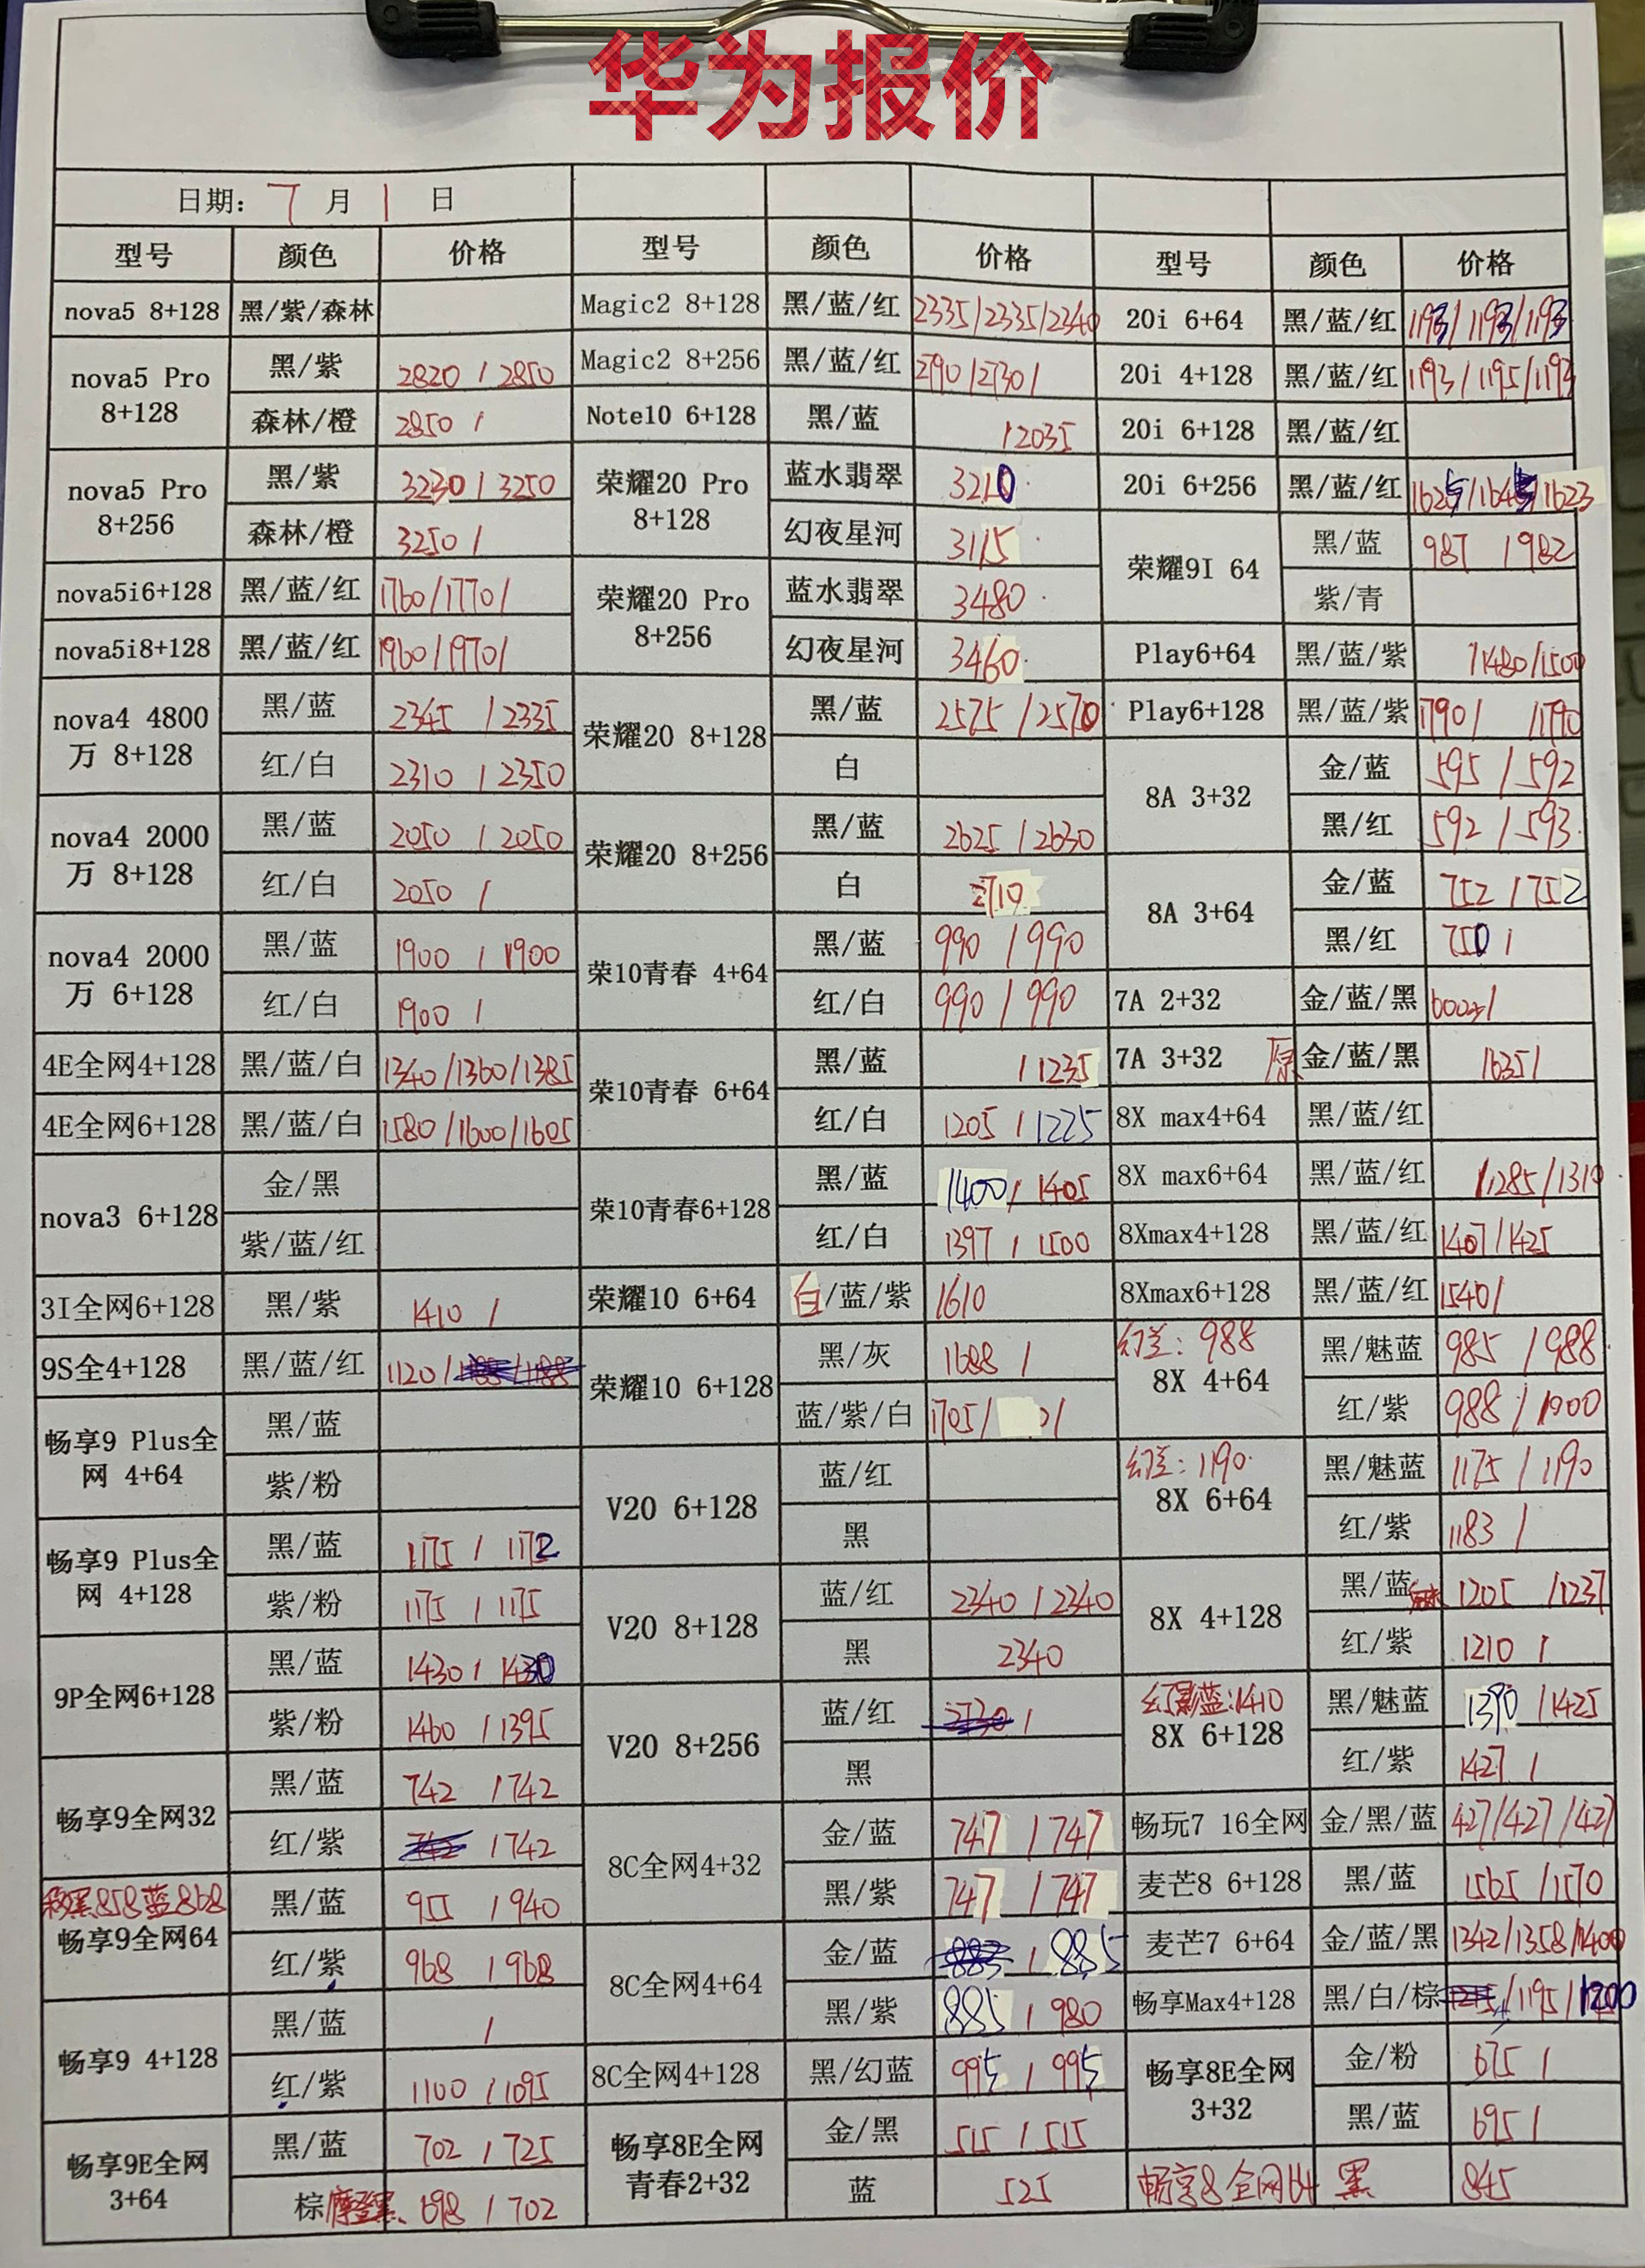 华为报价
日期: 7 月 1 日
型号 颜色 价格 型号 颜色 价格 型号 颜色 价格
nova5 8+128 黑/紫/森林 Magic2 8+128 黑/蓝/红 2335/2335/2340 20i 6+64 黑/蓝/红 1193/1193/1193
nova5 Pro 8+128 黑/紫 2820 / 2850 Magic2 8+256 黑/蓝/红 20i 4+128 黑/蓝/红 1193/1195/1193
森林/橙 2850 / Note10 6+128 黑/蓝 /2035 20i 6+128 黑/蓝/红
nova5 Pro 8+256 黑/紫 3230 / 3250 荣耀20 Pro 8+128 蓝水翡翠 3210 20i 6+256 黑/蓝/红
森林/橙 3250 / 幻夜星河 3115 荣耀9I 64 黑/蓝 987 / 982
nova5i6+128 黑/蓝/红 1760/1770/ 荣耀20 Pro 8+256 蓝水翡翠 3480 紫/青
nova5i8+128 黑/蓝/红 1960/1970/ 幻夜星河 3460 Play6+64 黑/蓝/紫 /1480/1500
nova4 4800万 8+128 黑/蓝 2345 / 2335 荣耀20 8+128 黑/蓝 2575 / 2570 Play6+128 黑/蓝/紫 1790/ /1790
红/白 2310 / 2350 白 8A 3+32 金/蓝 595 / 592
nova4 2000万 8+128 黑/蓝 2050 / 2050 荣耀20 8+256 黑/蓝 2625 / 2630 黑/红 592 / 593
红/白 2050 / 白 2710 8A 3+64 金/蓝 752 / 752
nova4 2000万 6+128 黑/蓝 1900 / 1900 荣10青春 4+64 黑/蓝 990 / 990 黑/红 750 /
红/白 1900 / 红/白 990 / 990 7A 2+32 金/蓝/黑
4E全网4+128 黑/蓝/白 1340/1360/1385 荣10青春 6+64 黑/蓝 / 1235 7A 3+32 原 金/蓝/黑 /635/
4E全网6+128 黑/蓝/白 1580/1600/1605 红/白 1205 / 1225 8X max4+64 黑/蓝/红
nova3 6+128 金/黑 荣10青春6+128 黑/蓝 1400 / 1405 8X max6+64 黑/蓝/红 /1285/1310
紫/蓝/红 红/白 1397 / 1500 8Xmax4+128 黑/蓝/红 1407/1425
3I全网6+128 黑/紫 1410 / 荣耀10 6+64 白/蓝/紫 1610 8Xmax6+128 黑/蓝/红 1540/
9S全4+128 黑/蓝/红 1120/ 荣耀10 6+128 黑/灰 1688 / 幻兰: 988 8X 4+64 黑/魅蓝 985 / 988
畅享9 Plus全网 4+64 黑/蓝 蓝/紫/白 1705/ 红/紫 988 / 1000
紫/粉 V20 6+128 蓝/红 幻兰: 1190 8X 6+64 黑/魅蓝 1175 / 1190
畅享9 Plus全网 4+128 黑/蓝 1175 / 1172 黑 红/紫 1183 /
紫/粉 1175 / 1175 V20 8+128 蓝/红 2340 / 2340 8X 4+128 黑/蓝 1205 / 1237
9P全网6+128 黑/蓝 1430 / 1430 黑 2340 红/紫 1210 /
紫/粉 1460 / 1395 V20 8+256 蓝/红 幻影蓝:1410 8X 6+128 黑/魅蓝 1390 / 1425
畅享9全网32 黑/蓝 742 / 742 黑 红/紫 1427 /
红/紫 / 742 8C全网4+32 金/蓝 747 / 747 畅玩7 16全网 金/黑/蓝 427/427/427
黑858蓝868 畅享9全网64 黑/蓝 955 / 940 黑/紫 747 / 747 麦芒8 6+128 黑/蓝 1565 / 1570
红/紫 968 / 968 8C全网4+64 金/蓝 / 885 麦芒7 6+64 金/蓝/黑 1342/1358/1400
畅享9 4+128 黑/蓝 / 黑/紫 885 / 980 畅享Max4+128 黑/白/棕 /1195/1200
红/紫 1100 / 1095 8C全网4+128 黑/幻蓝 995 / 995 畅享8E全网 3+32 金/粉 675 /
畅享9E全网 3+64 黑/蓝 702 / 725 畅享8E全网 青春2+32 金/黑 515 / 515 黑/蓝 695 /
棕 摩登黑 698 / 702 蓝 525 畅享8全网64 黑 845